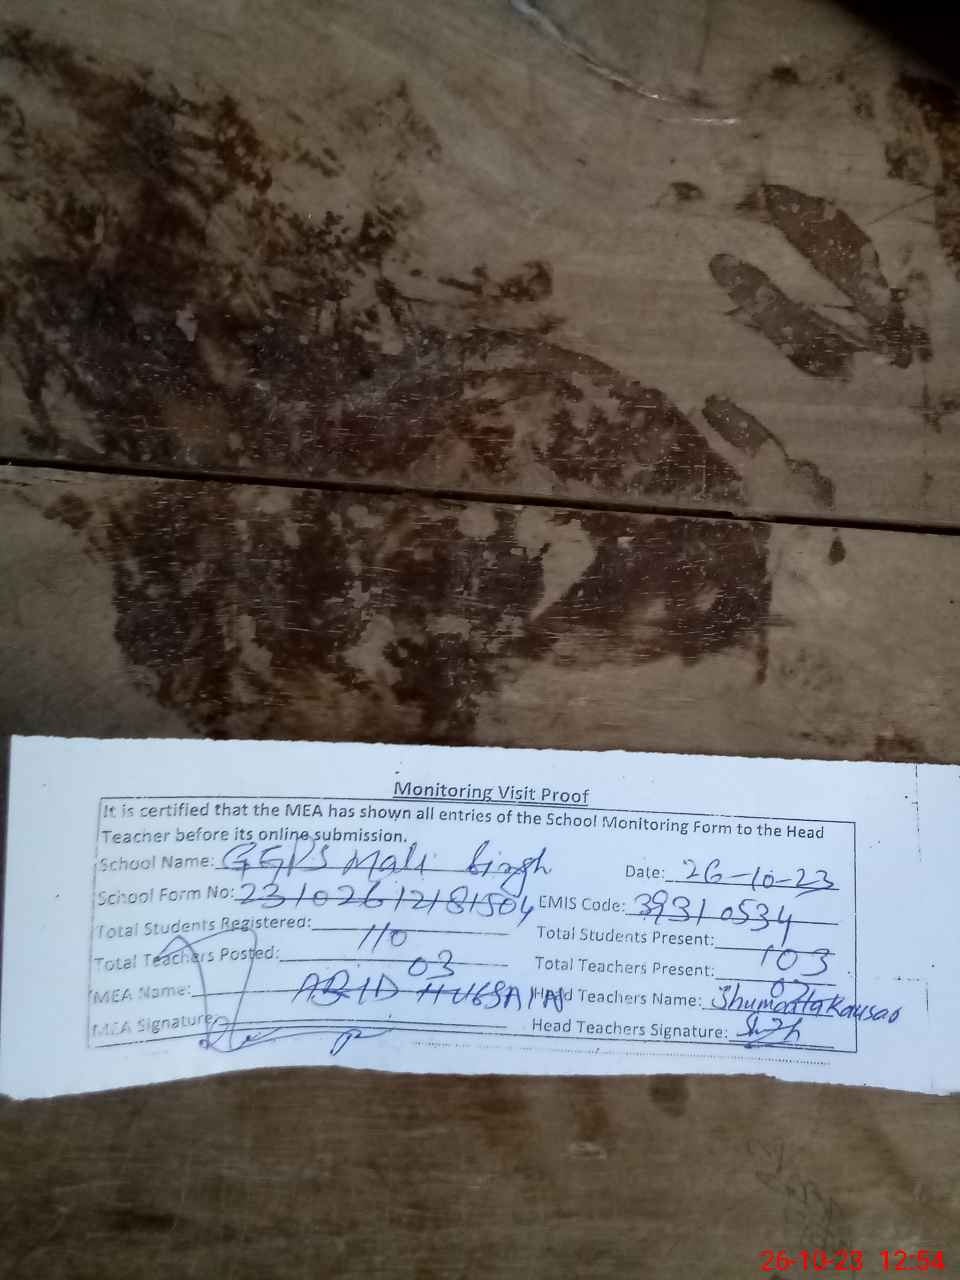 Monitoring Visit Proof
It is certified that the MEA has shown all entries of the School Monitoring Form to the Head
Teacher before its online submission.
School Name: GGPS Mali Singh Date: 26-10-23
School Form No: 23102612181504 EMIS Code: 39310534
Total Students Registered: 110 Total Students Present: 103
Total Teachers Posted: 03 Total Teachers Present:
MEA Name: ABID HUSSAIN Head Teachers Name: Kausar
MEA Signature Head Teachers Signature:
26-10-23 12:54